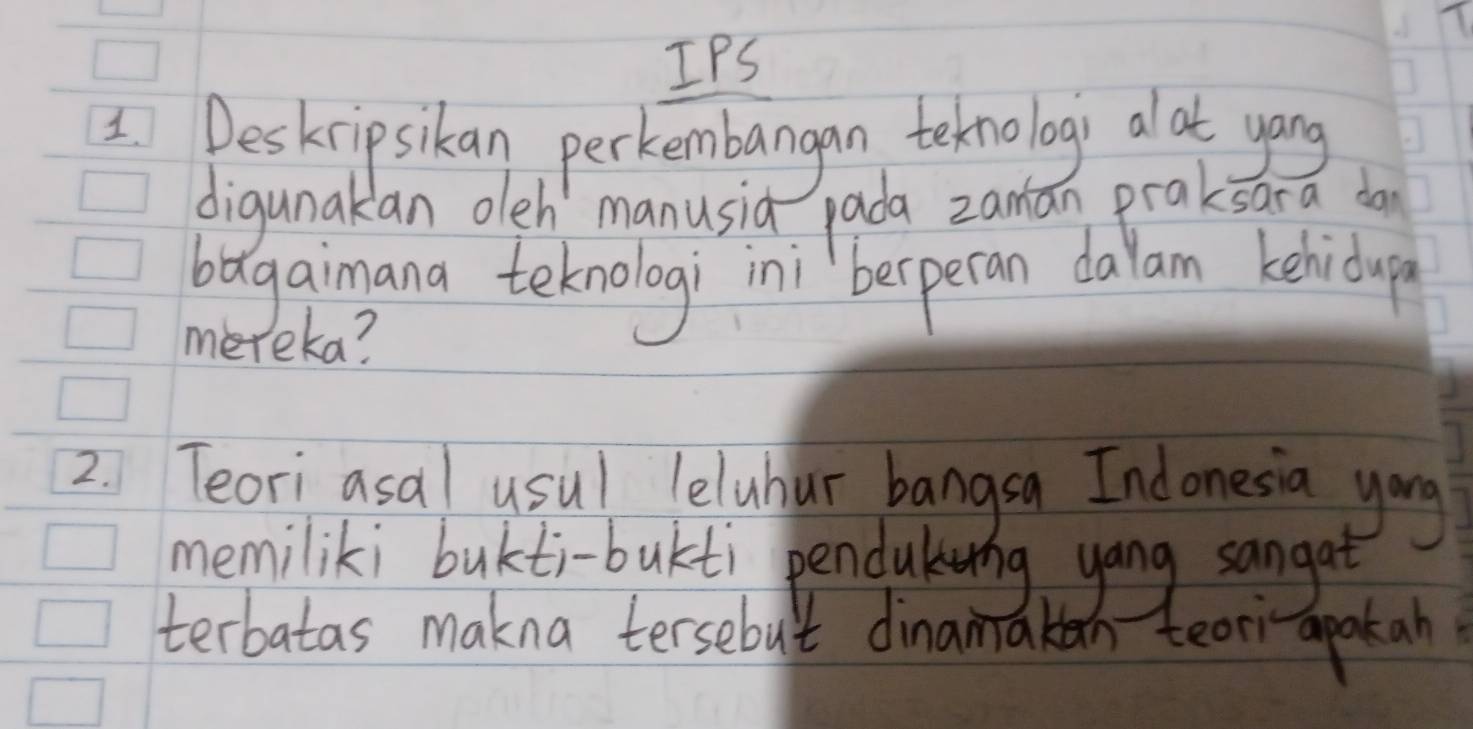 IPS
1. Deskripsikan perkembangan teknologi alat yang
digunakan oleh manusia pada zaman praksara dan
bagaimana teknologi ini berperan dalam kehidupa
mereka?
2. Teori asal usul leluhur bangsa Indonesia yang
memiliki bukti-bukti pendukung yang sangat
terbatas makna tersebut dinamakan teori apakah